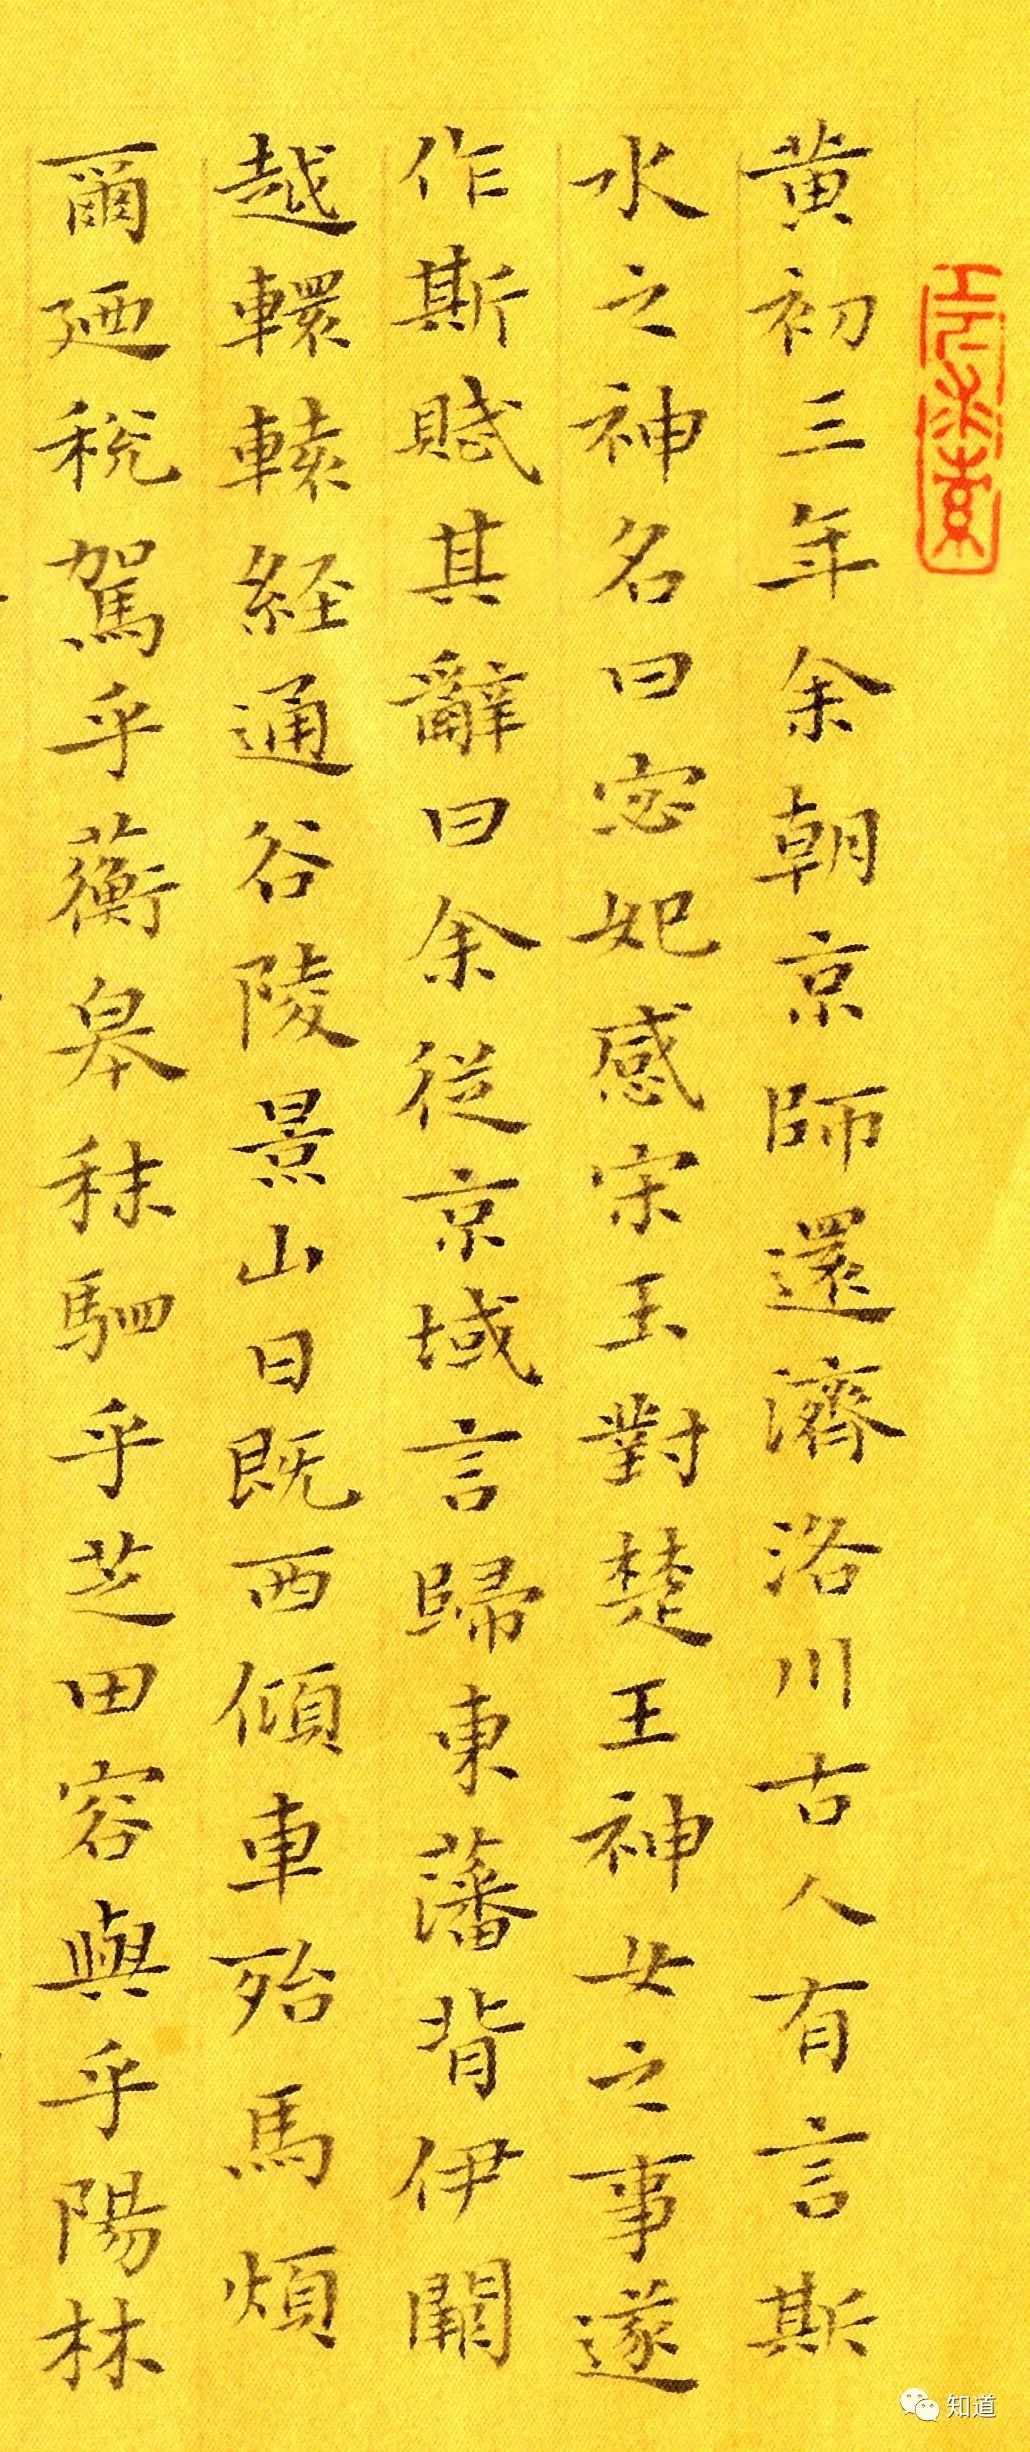 黄初三年余朝京師還濟洛川古人有言斯
水之神名曰宓妃感宋玉對楚王神女之事遂
作斯賦其辭曰余従京域言歸東藩背伊闕
越轘轅経通谷陵景山日既西傾車殆馬煩
爾廼税駕乎蘅皋秣駟乎芝田容與乎陽林
知道